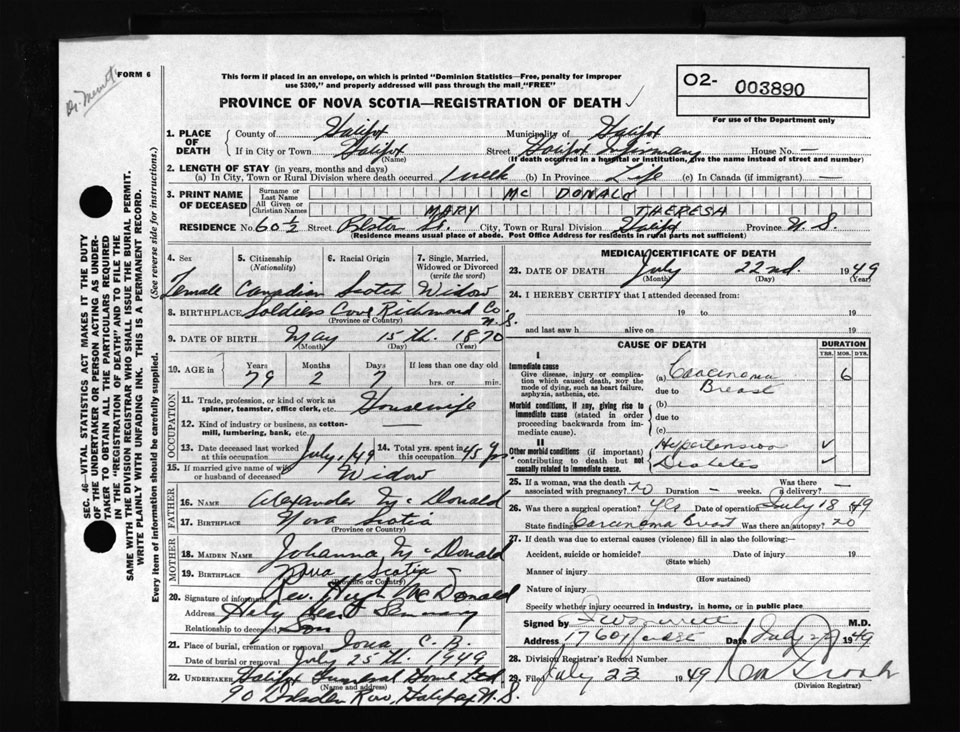 Dr. Merritt
FORM 6
This form if placed in an envelope, on which is printed "Dominion Statistics—Free, penalty for improper
use $300," and properly addressed will pass through the mail "FREE"
PROVINCE OF NOVA SCOTIA—REGISTRATION OF DEATH ✓
O2- 003890
For use of the Department only
SEC. 46—VITAL STATISTICS ACT MAKES IT THE DUTY
OF THE UNDERTAKER OR PERSON ACTING AS UNDER-
TAKER TO OBTAIN ALL THE PARTICULARS REQUIRED
IN THE "REGISTRATION OF DEATH" AND TO FILE THE
SAME WITH THE DIVISION REGISTRAR WHO SHALL ISSUE THE BURIAL PERMIT.
WRITE PLAINLY WITH UNFADING INK. THIS IS A PERMANENT RECORD.
Every item of information should be carefully supplied. (See reverse side for instructions.)
1. PLACE OF DEATH
County of Halifax Municipality of Halifax
If in City or Town Halifax Street Halifax Infirmary House No. —
(Name) (If death occurred in a hospital or institution, give the name instead of street and number)
2. LENGTH OF STAY (in years, months and days)
(a) In City, Town or Rural Division where death occurred 1 week (b) In Province Life (c) In Canada (if immigrant) —
3. PRINT NAME OF DECEASED
Surname or Last Name Mc DONALD
All Given or Christian Names MARY THERESA
RESIDENCE No. 60½ Street St. City, Town or Rural Division Halifax Province N. S.
(Residence means usual place of abode. Post Office Address for residents in rural parts not sufficient)
4. Sex 5. Citizenship (Nationality) 6. Racial Origin 7. Single, Married, Widowed or Divorced (write the word)
Female Canadian Scotch Widow
8. BIRTHPLACE Soldiers Cove Richmond Co. N.S.
(Province or Country)
9. DATE OF BIRTH May 15th. 1870
(Month) (Day) (Year)
10. AGE in Years Months Days If less than one day old
79 2 7 hrs. or min.
OCCUPATION
11. Trade, profession, or kind of work as
spinner, teamster, office clerk, etc. Housewife
12. Kind of industry or business, as cotton-
mill, lumbering, bank, etc. —
13. Date deceased last worked at this occupation July, 1/49 14. Total yrs. spent in this occupation 45 yrs
15. If married give name of wife
or husband of deceased Widow
FATHER
16. NAME Alexander McDonald
17. BIRTHPLACE Nova Scotia
(Province or Country)
MOTHER
18. MAIDEN NAME Johanna McDonald
19. BIRTHPLACE Nova Scotia
(Province or Country)
20. Signature of informant Rev. Hugh McDonald
Address Holy Heart Seminary
Relationship to deceased Son
21. Place of burial, cremation or removal Iona C. B.
Date of burial or removal July 25th. 1949
22. UNDERTAKER Halifax Funeral Home Ltd.
(Name and address)
90 Row, Halifax N. S.
MEDICAL CERTIFICATE OF DEATH
23. DATE OF DEATH July 22nd. 1949
(Month) (Day) (Year)
24. I HEREBY CERTIFY that I attended deceased from:
19 to 19
and last saw h alive on 19
CAUSE OF DEATH DURATION
YRS. MOS. DYS.
I
Immediate cause
Give disease, injury or complica-
tion which caused death, NOT the
mode of dying, such as heart failure,
asphyxia, asthenia, etc.
(a) Carcinoma 6
due to Breast
Morbid conditions, if any, giving rise to
immediate cause (stated in order
proceeding backwards from im-
mediate cause).
(b)
due to
(c)
II
Other morbid conditions (if important)
contributing to death but not
causally related to immediate cause.
Hypertension ✓
Diabetes ✓
25. If a woman, was the death Was there
associated with pregnancy? no Duration — weeks. Delivery? —
26. Was there a surgical operation? yes Date of operation July 18 1949
State findings Carcinoma Breast Was there an autopsy? no
27. If death was due to external causes (violence) fill in also the following:—
Accident, suicide or homicide? Date of injury 19
(State which)
Manner of injury
(How sustained)
Nature of injury
Specify whether injury occurred in industry, in home, or in public place
Signed by M.D.
Address 176 Date July 1949
28. Division Registrar's Record Number
29. Filed July 23 1949
(Division Registrar)